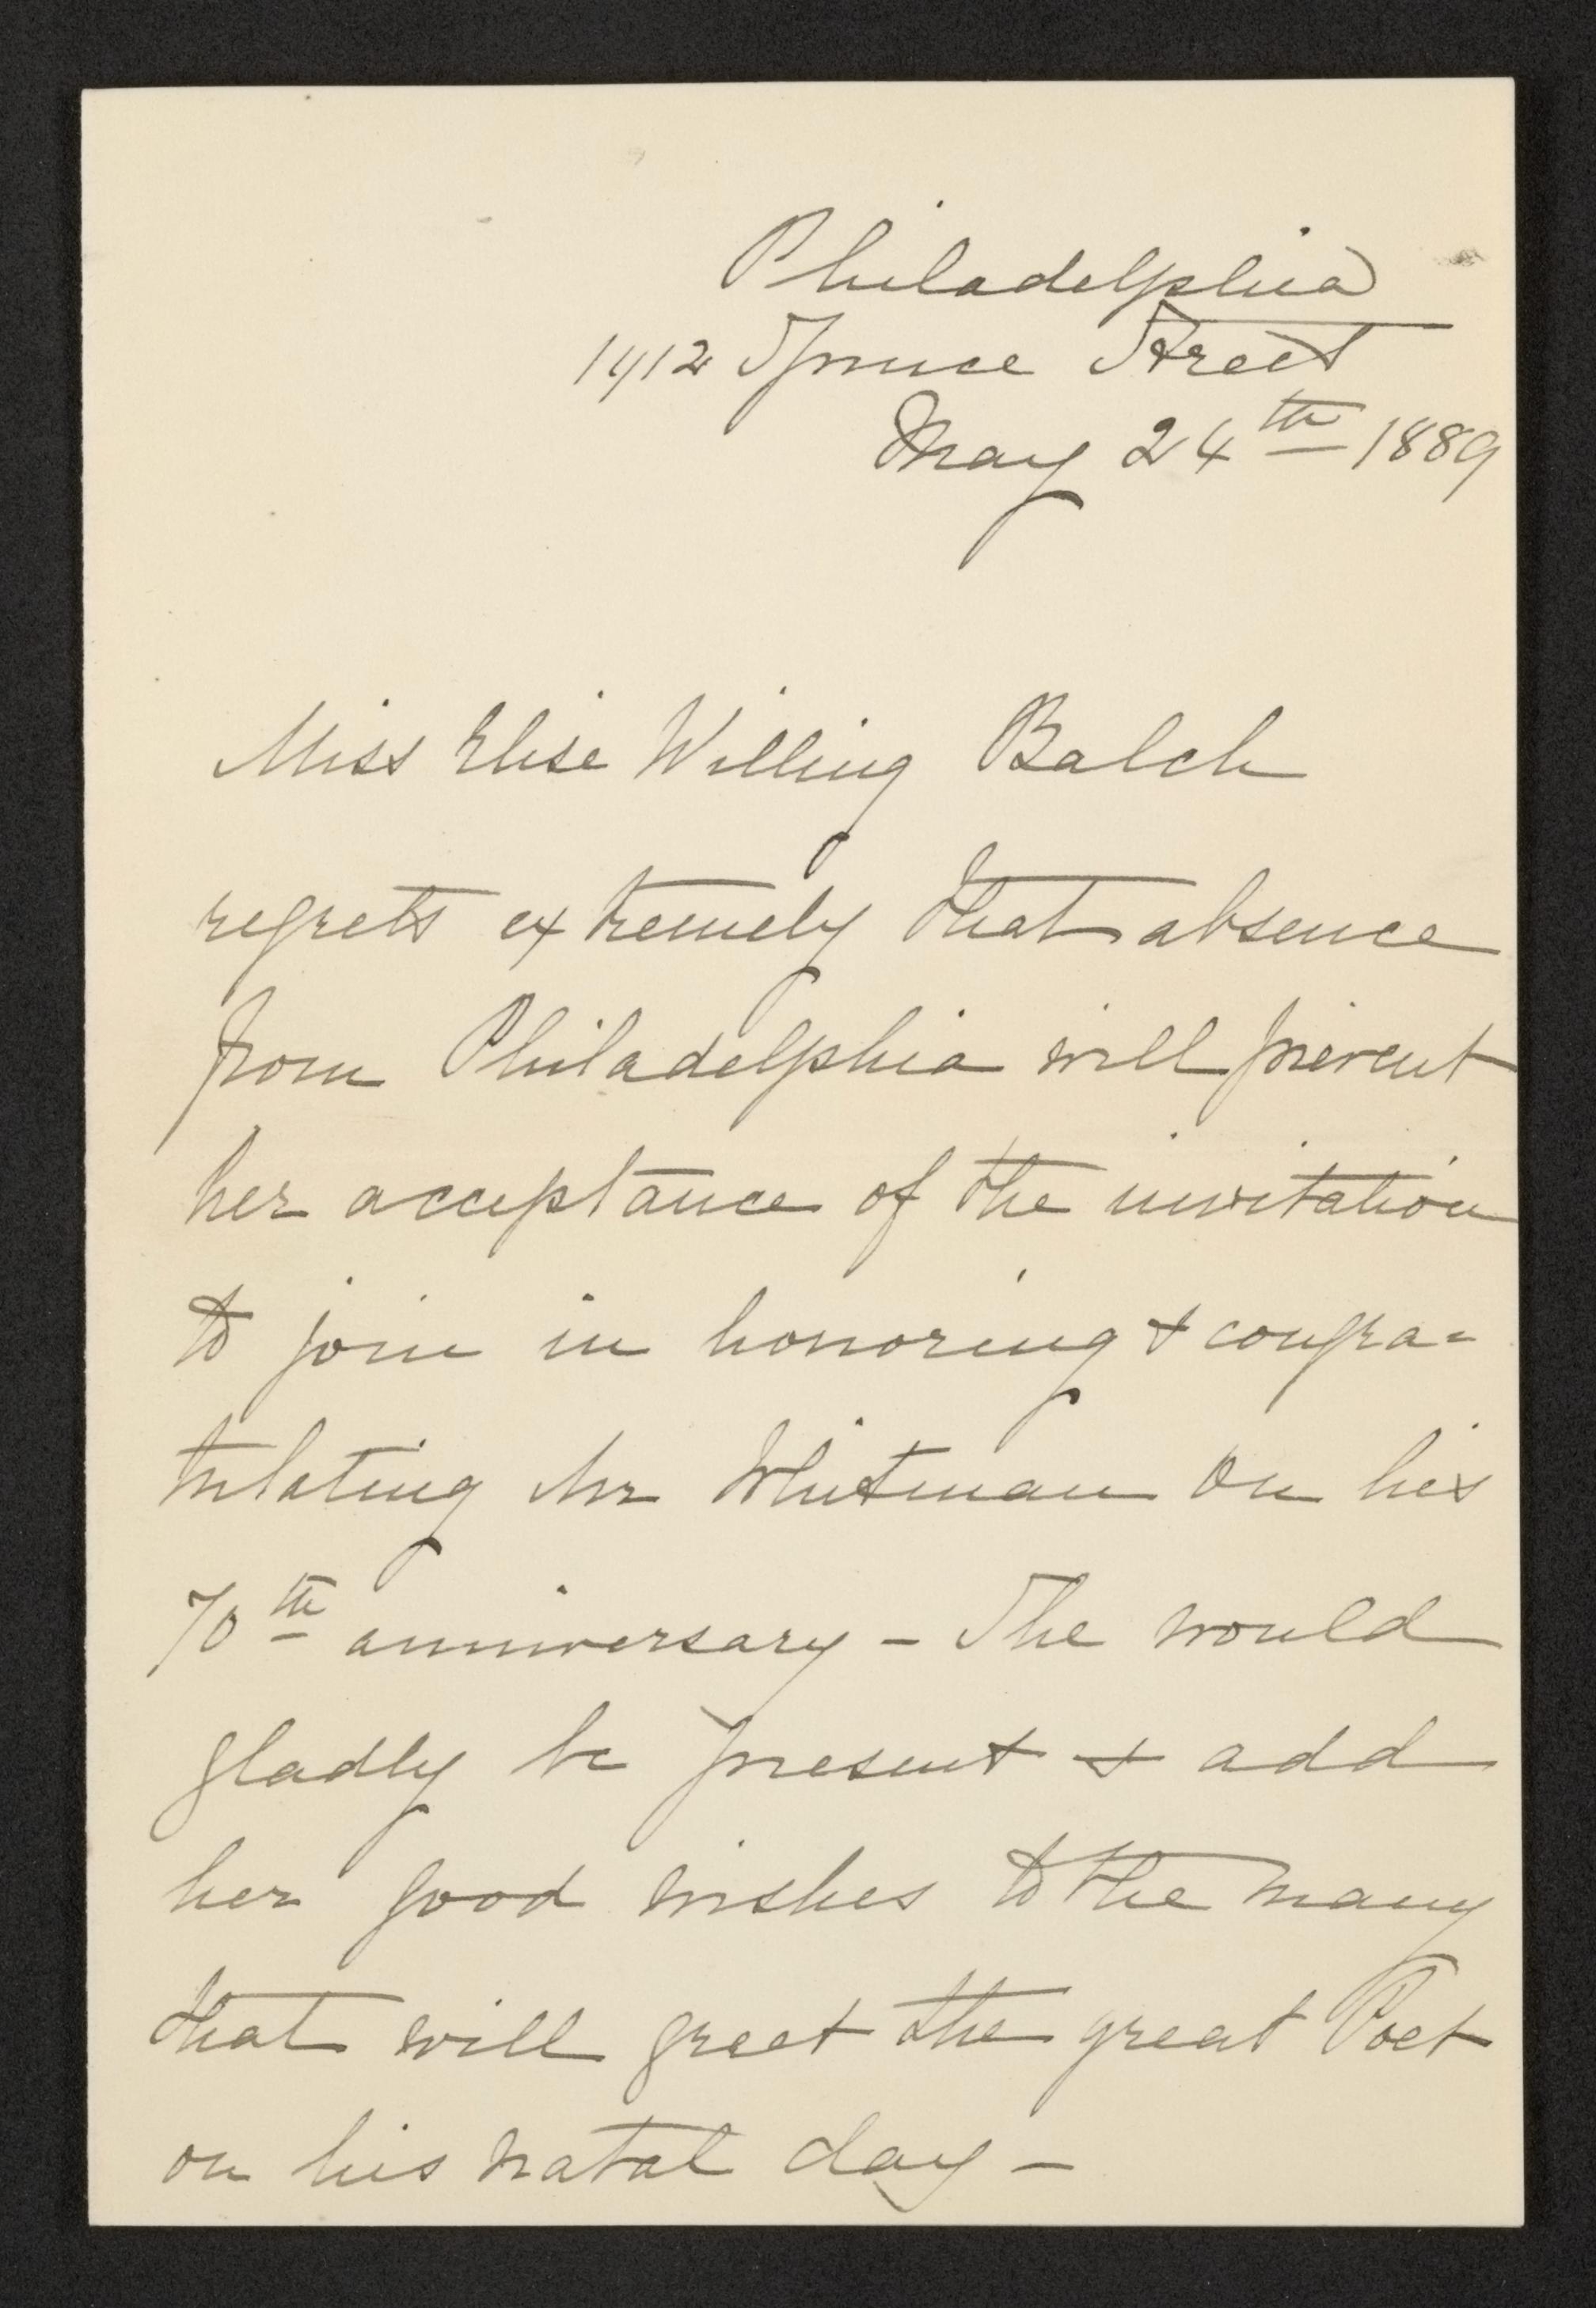 Philadelphia
1412 Spruce Street
May 24th 1889
Miss Elise Willing Balch
regrets extremely that absence
from Philadelphia will prevent
her acceptance of the invitation
to join in honoring & congra=
tulating Mr Whitman on his
70th anniversary – She would
gladly be present & add
her good wishes to the many
that will greet the great Poet
on his natal day –